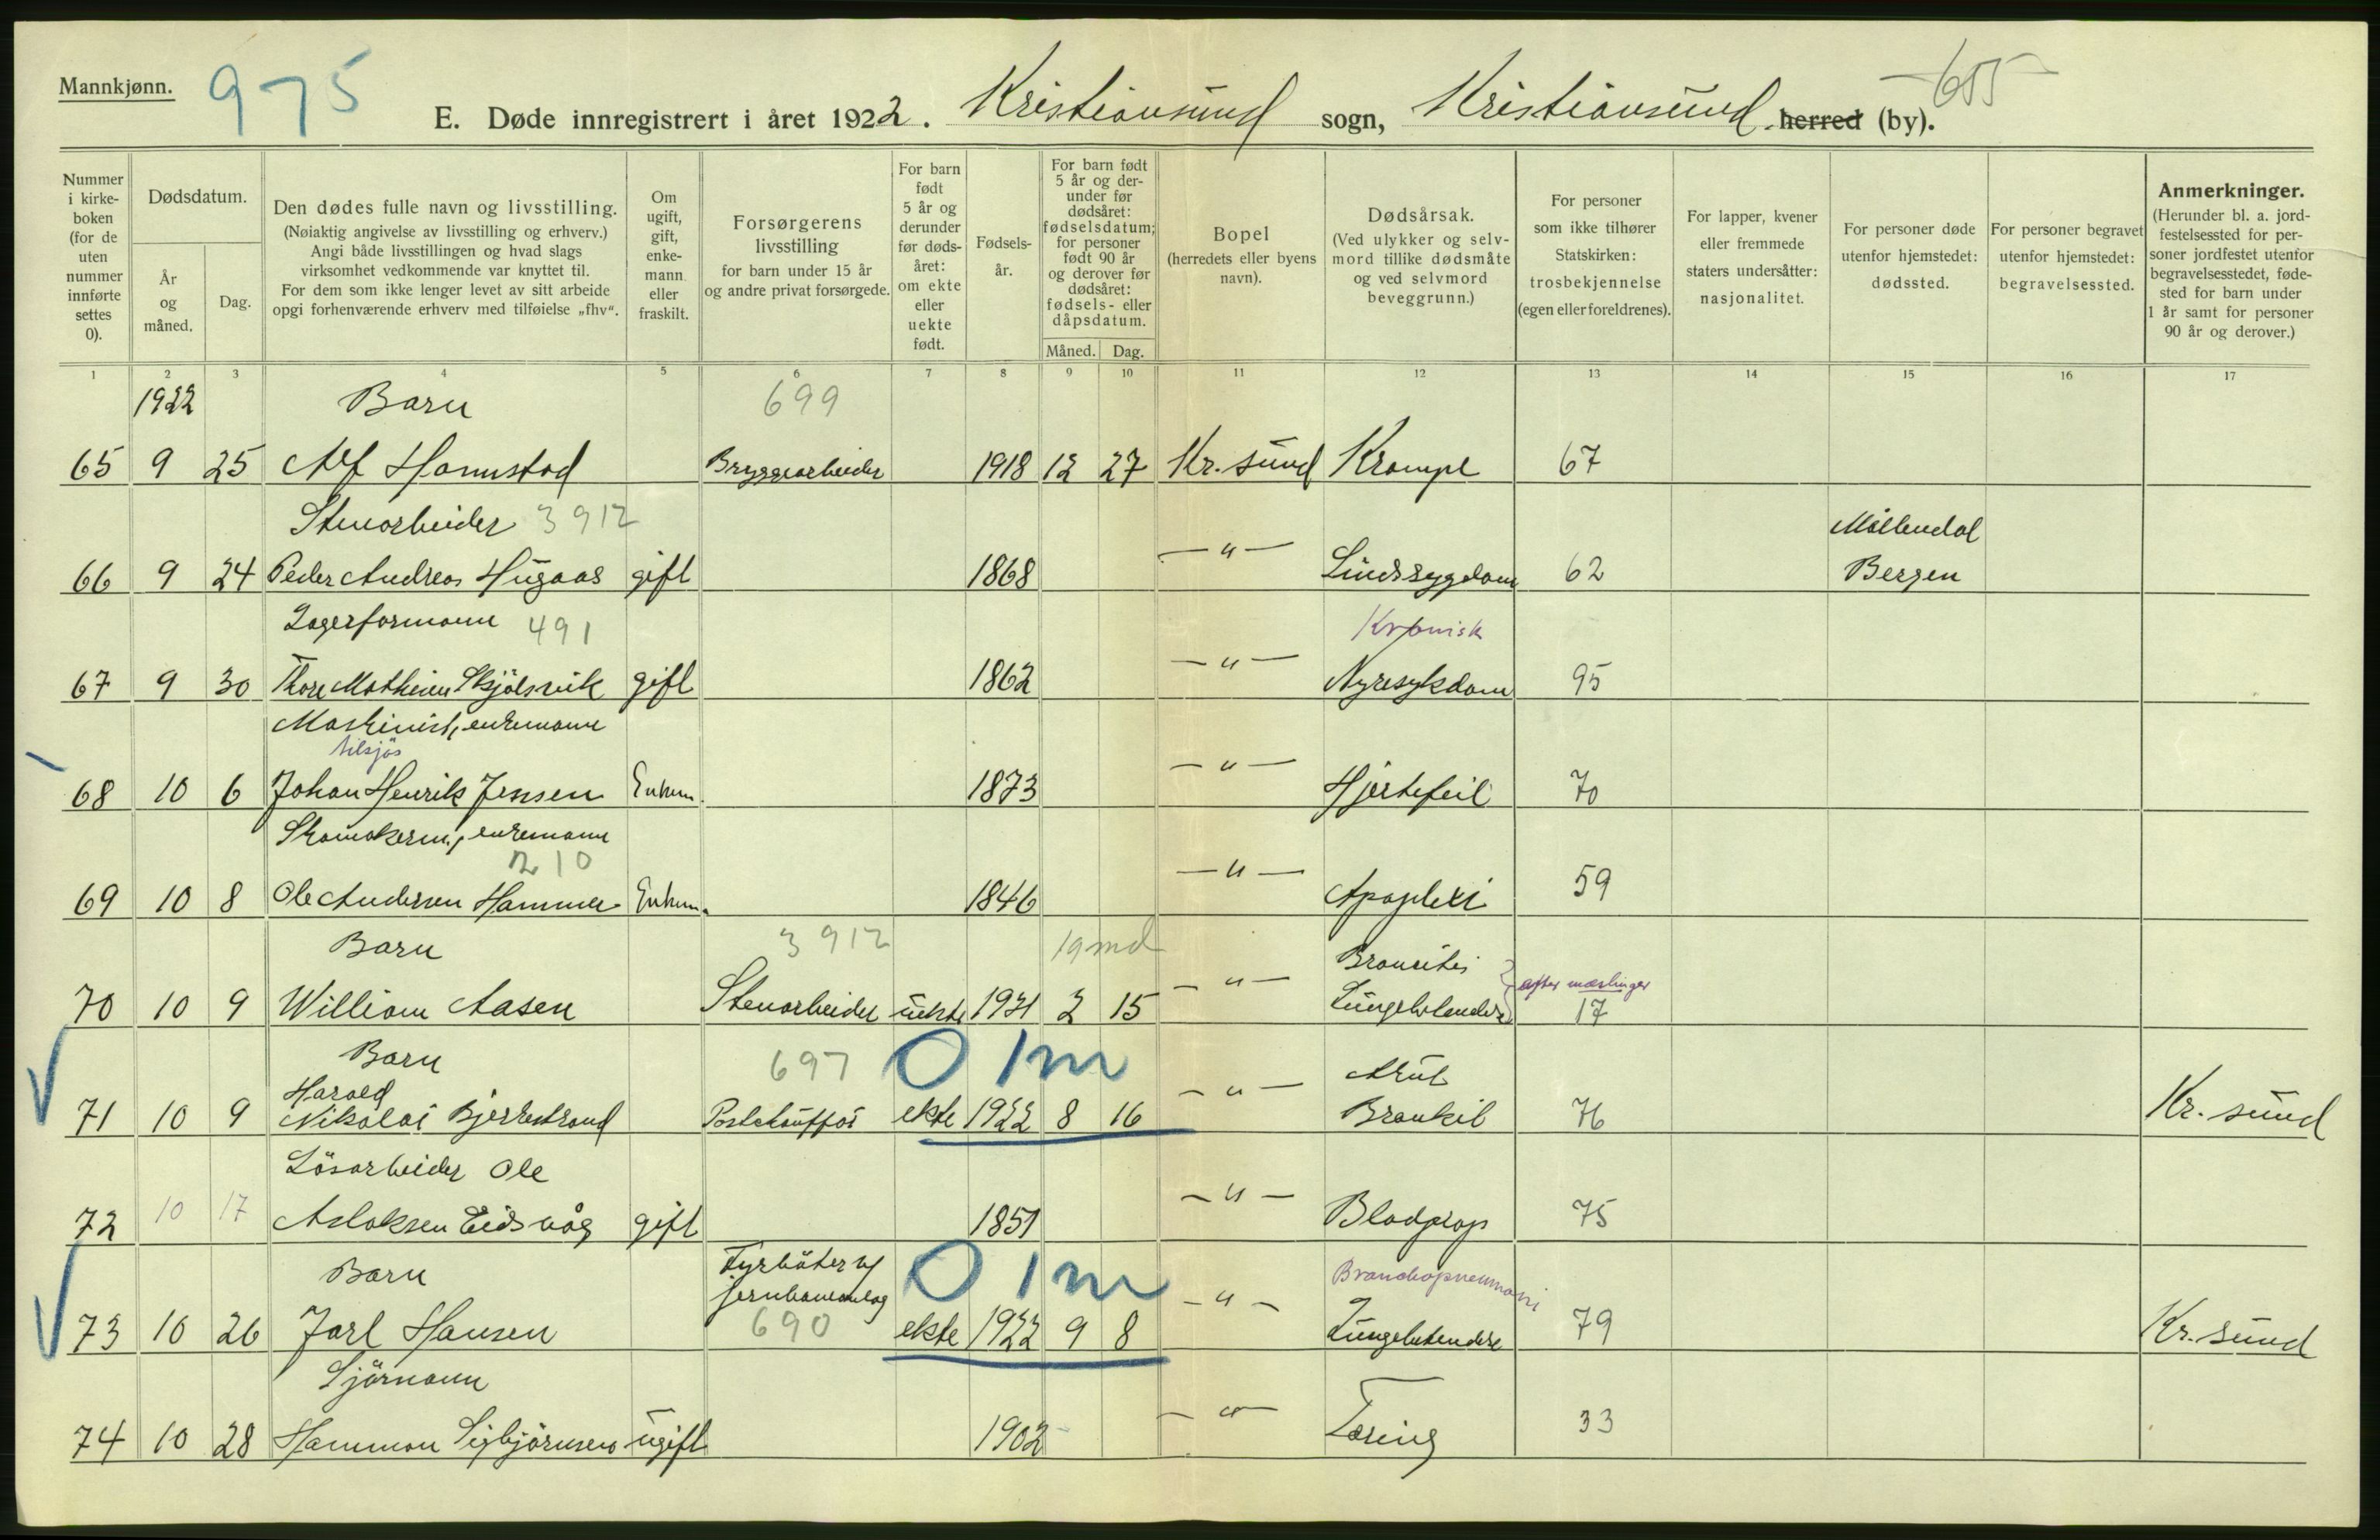 Mannkjønn.
975
655
E. Døde innregistrert i året 1922. Kristiansund sogn, Kristiansund herred (by).
Nummer i kirkeboken (for de uten nummer innførte settes 0).
Dødsdatum.
År og måned.
Dag.
Den dødes fulle navn og livsstilling.
(Nøiaktig angivelse av livsstilling og erhverv.)
Angi både livsstillingen og hvad slags
virksomhet vedkommende var knyttet til.
For dem som ikke lenger levet av sitt arbeide
opgi forhenværende erhverv med tilføielse „fhv“.
Om ugift, gift, enkemann eller fraskilt.
Forsørgerens livsstilling
for barn under 15 år
og andre privat forsørgede.
For barn født 5 år og derunder før dødsåret: om ekte eller uekte født.
Fødselsår.
For barn født 5 år og derunder før dødsåret: fødselsdatum; for personer født 90 år og derover før dødsåret: fødsels- eller dåpsdatum.
Måned. Dag.
Bopel
(herredets eller byens navn).
Dødsårsak.
(Ved ulykker og selvmord tillike dødsmåte og ved selvmord beveggrunn.)
For personer som ikke tilhører Statskirken: trosbekjennelse (egen eller foreldrenes).
For lapper, kvener eller fremmede staters undersåtter: nasjonalitet.
For personer døde utenfor hjemstedet: dødssted.
For personer begravet utenfor hjemstedet: begravelsessted.
Anmerkninger.
(Herunder bl. a. jordfestelsessted for personer jordfestet utenfor begravelsesstedet, fødested for barn under 1 år samt for personer 90 år og derover.)
1 2 3 4 5 6 7 8 9 10 11 12 13 14 15 16 17
1922 Barn 699
65 9 25 Alf Hamnstad Bryggearbeider 1918 12 27 Kr. sund Krampe 67
Stenarbeider 3912 Møllendal
66 9 24 Peder Andreas Hugaas gift 1868 —"— Sindssygdom 62 Bergen
Lagerformann 491 Kronisk
67 9 30 Thore Matheus Skjølsvik gift 1862 —"— Nyresykdom 95
Maskinist, enkemann
tilsjøs
68 10 6 Johan Henrik Jensen Enkem. 1873 —"— Hjertefeil 70
Skomakerm., enkemann
210
69 10 8 Ole Andersen Hammer Enkem. 1846 —"— Apoplexi 59
Barn 3912 19 md Broncitis
70 10 9 William Aasen Stenarbeider uekte 1921 2 15 —"— Lungebetendelse efter meslinger 17
Barn 697 0 1m Akut
Harald
71 10 9 Nikolai Bjerkestrand Postchauffør ekte 1922 8 16 —"— Bronkit 76 Kr. sund
Løsarbeider Ole
72 10 17 Aslaksen Eidsvåg gift 1851 —"— Blodprop 75
Barn Fyrbøter v/ jernbaneanlæg 0 1m Bronchopneumoni
73 10 26 Jarl Hansen 690 ekte 1922 9 8 —"— Lungebetendelse 79 Kr. sund
Sjømann
74 10 28 Hammon Sigbjørnsen ugift 1902 —"— Tæring 33